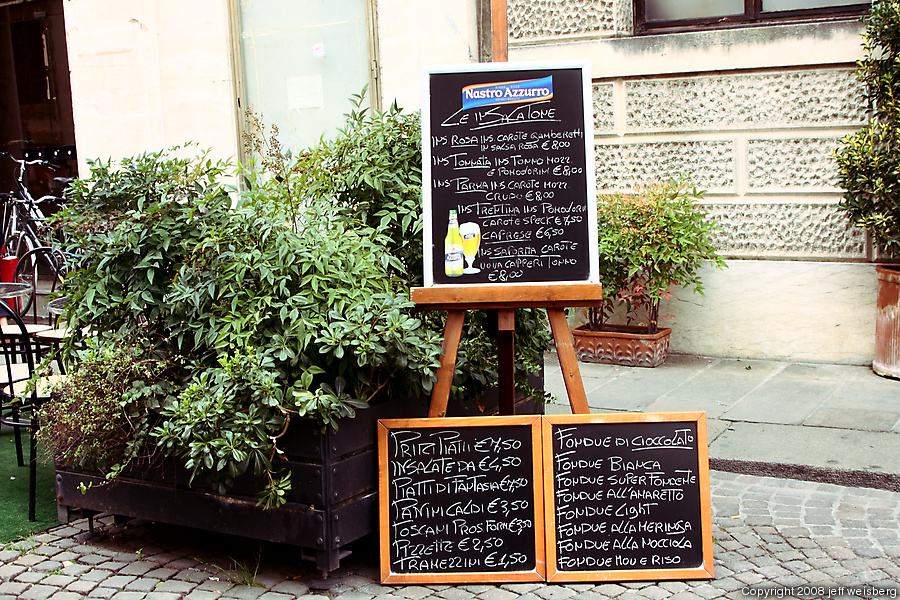 Nastro Azzurro
LE INSALATONE
INS ROSA INS. CAROTE GAMBERETTI
IN SALSA ROSA € 8,00
INS TONNATA INS TONNO MOZZ.
E POMODORINI € 8,00
INS PARMA INS CAROTE MOZZ.
CRUDO € 8,00
INS TRENTINA INS POMODORI
CAROTE SPECK € 7,50
CAPRESE € 6,50
INS SAPORITA CAROTE
UOVA CAPPERI TONNO
€ 8,00
PRIMI PIATTI € 4,50
INSALATE DA € 4,50
PIATTI DI FANTASIA €
PANINI CALDI € 3,50
TOSCANI PROS FORM €
PIZZETTE € 2,50
TRAMEZZINI € 1,50
FONDUE DI CIOCCOLATO
FONDUE BIANCA
FONDUE SUPER FONDENTE
FONDUE ALL'AMARETTO
FONDUE LIGHT
FONDUE ALLA MERINGA
FONDUE ALLA NOCCIOLA
FONDUE MOU E RISO
Copyright 2008 jeff weisberg